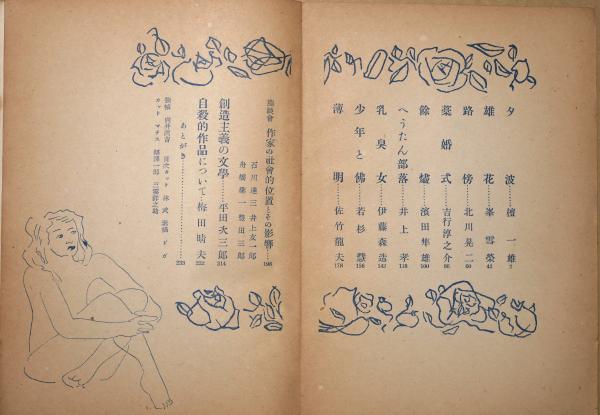 夕波……檀一雄 7
雄花……峯雪榮 42
路傍……北川晃二 60
藁婚式……吉行淳之介 86
餘燼……濱田隼雄 100
へうたん部落……井上孝 118
乳臭女……伊藤森造 147
少年と佛……若杉慧 156
薄明……佐竹龍夫 178
座談會 作家の社會的位置とその影響……198
石川達三 井上友一郎
舟橋聖一 豊田三郎
創造主義の文學……平田次三郎 214
自殺的作品について……梅田晴夫 222
あとがき……223
カット マチス